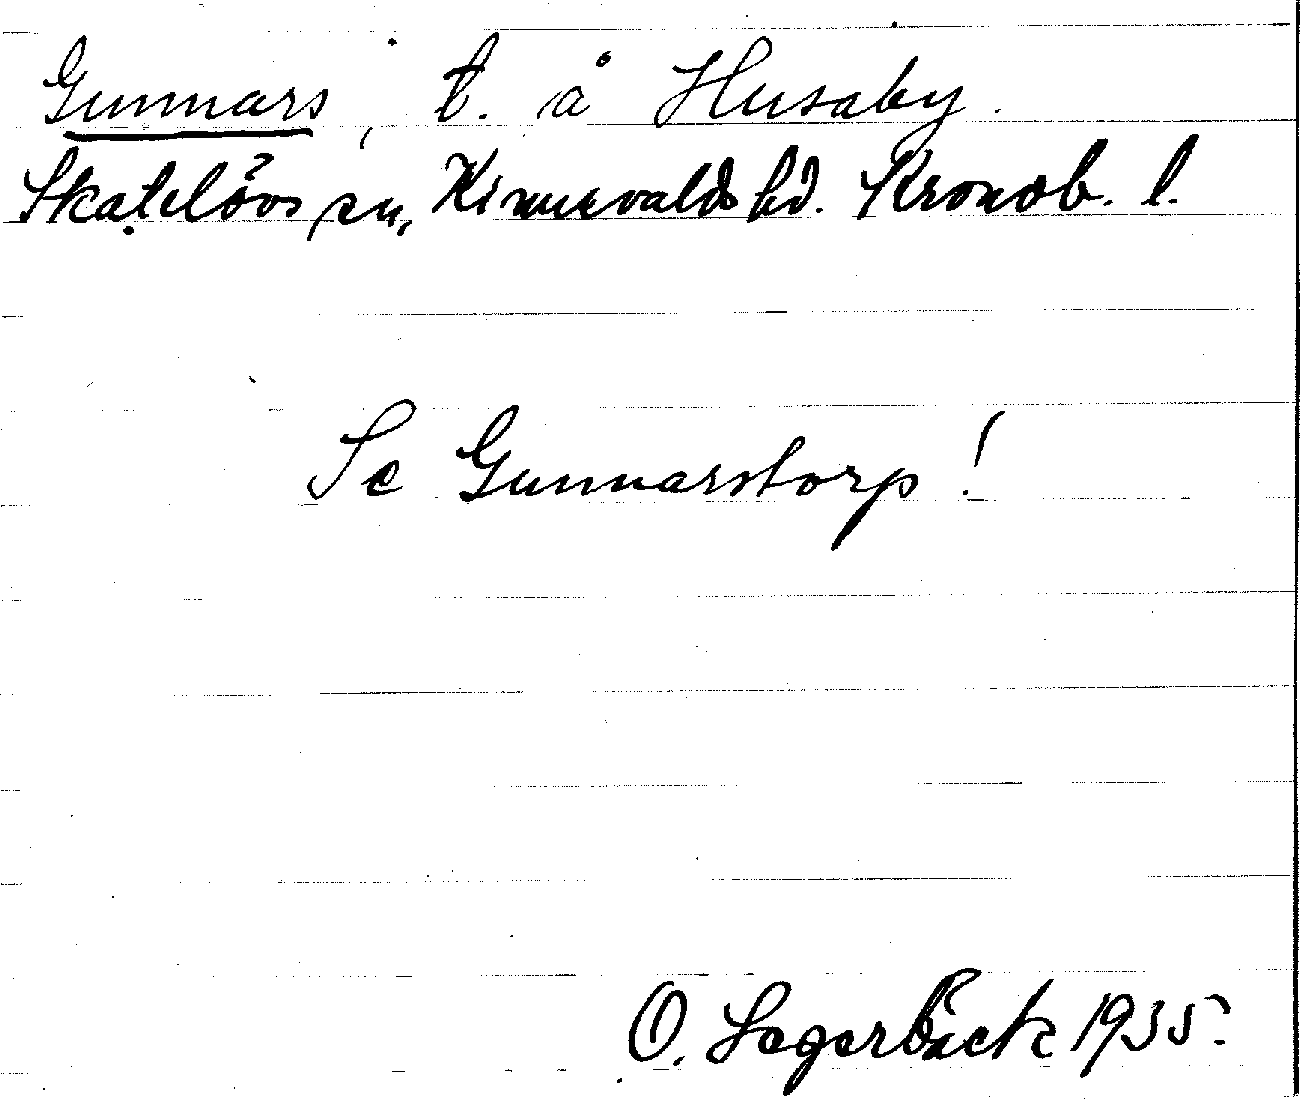 Gunnars, t. å Husaby.
Skatelövs sn, Kinnevalds hd. Kronob. l.
Se Gunnarstorp!
O. Lagerbäck 1935.